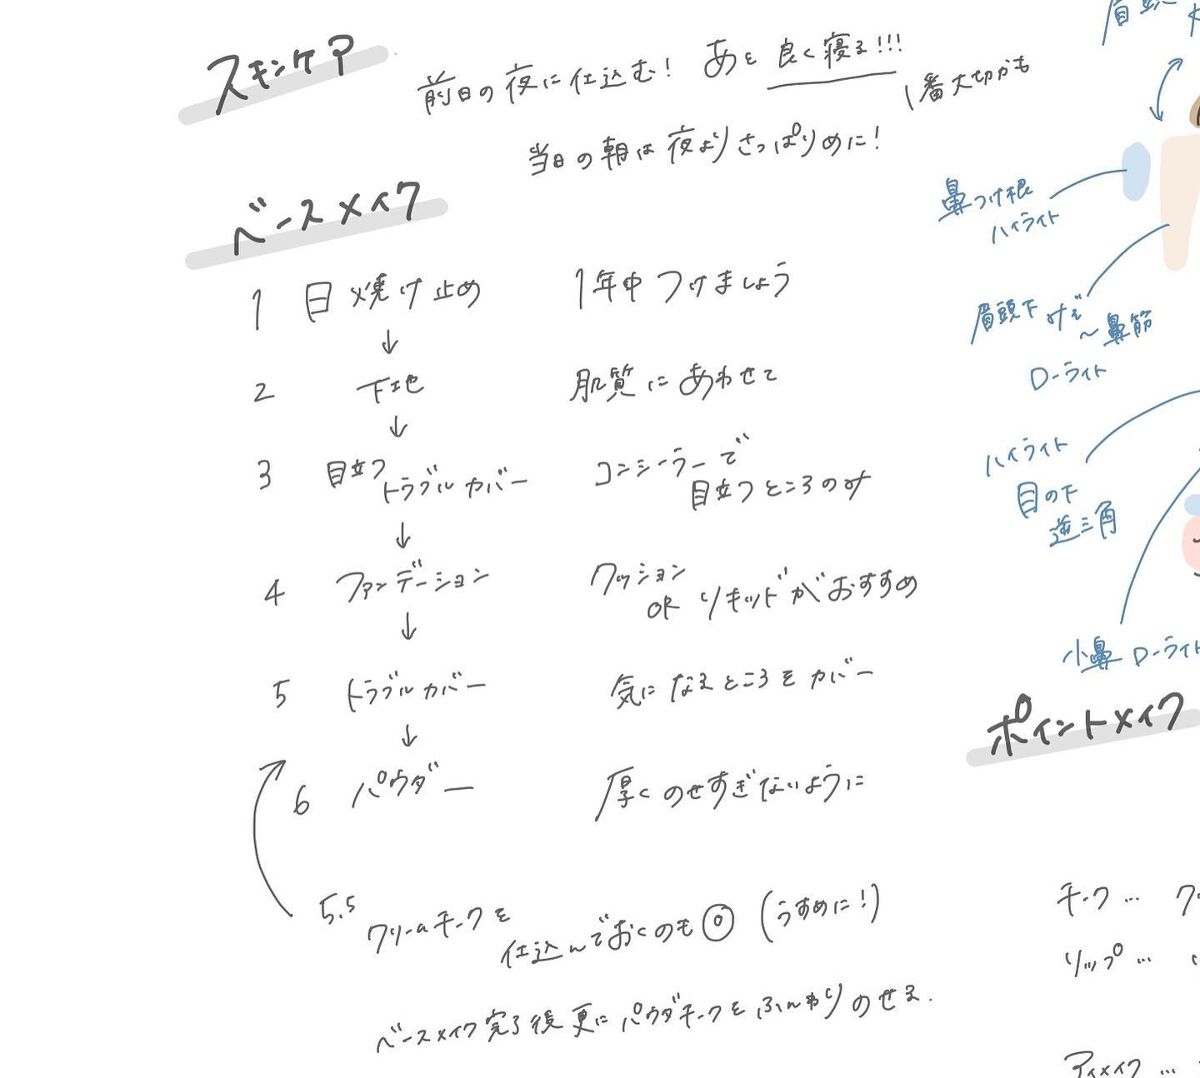 スキンケア
前日の夜に仕込む! あと 良く寝る!!!
1番大切かも
当日の朝は夜よりさっぱりめに!
ベースメイク
1 日焼け止め 1年中つけましょう
↓
2 下地 肌質にあわせて
↓
3 目立つ
トラブルカバー
コンシーラーで
目立つところのみ
↓
4 ファンデーション
クッション
OR リキッドがおすすめ
↓
5 トラブルカバー 気になるところをカバー
↓
6 パウダー 厚くのせすぎないように
5.5 クリームチークを
仕込んでおくのも◎ (うすめに!)
ベースメイク完了後更にパウダチークをふんわりのせる.
眉頭
鼻つけ根
ハイライト
眉頭下
〜鼻筋
ローライト
ハイライト
目の下
逆三角
小鼻 ローライト
ポイントメイク
チーク… ク
リップ…
アイメイク…